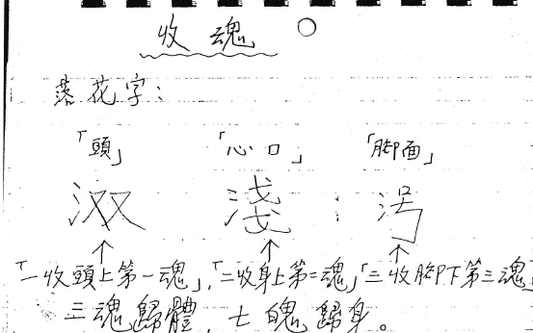 收魂 ○
落花字：
「頭」 「心口」 「腳面」
汉又 淺 ； 污
↑ ↑ ↑
「一收頭上第一魂」，「二收身上第二魂」「三收腳下第三魂」
三魂歸體，七魄歸身。